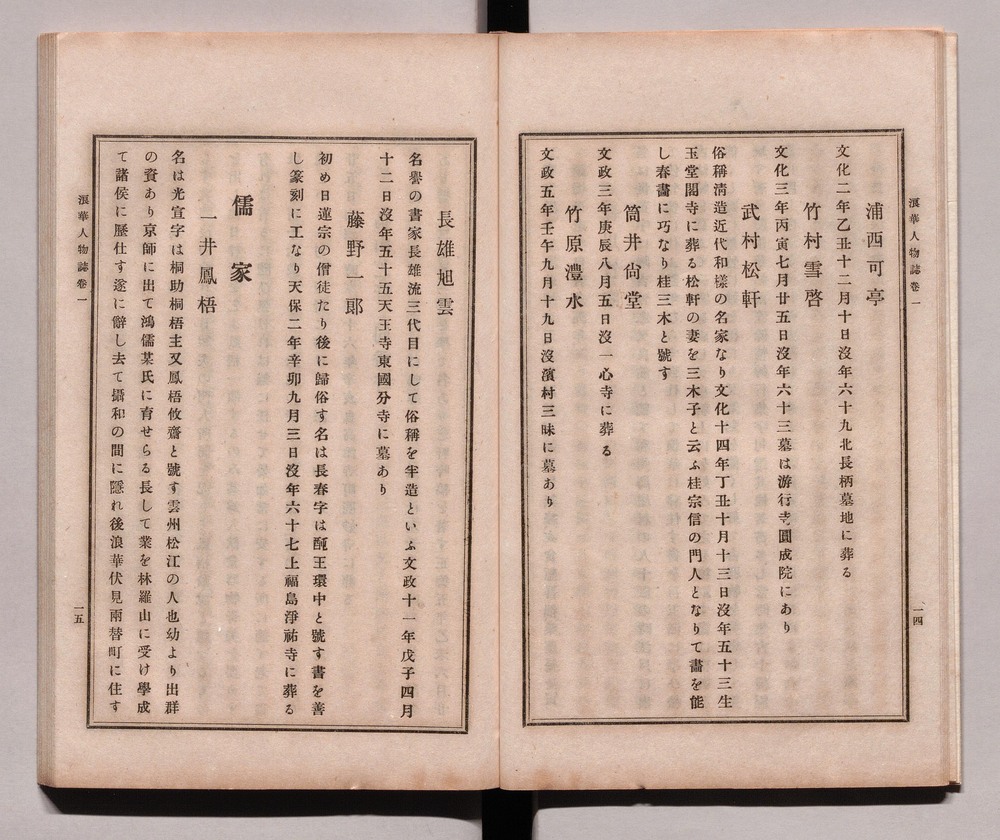 浪華人物誌卷一
一四
浦西可亭
文化二年乙丑十二月十日沒年六十九北長柄墓地に葬る
竹村雪啓
文化三年丙寅七月廿五日沒年六十三墓は游行寺圓成院にあり
武村松軒
俗稱淸造近代和樣の名家なり文化十四年丁丑十月十三日沒年五十三生
玉堂閣寺に葬る松軒の妻を三木子と云ふ桂宗信の門人となりて畵を能
し春畵に巧なり桂三木と號す
筒井尙堂
文政三年庚辰八月五日沒一心寺に葬る
竹原澧水
文政五年壬午九月十九日沒濱村三昧に墓あり
長雄旭雲
名譽の書家長雄流三代目にして俗稱を半造といふ文政十一年戊子四月
十二日沒年五十五天王寺東國分寺に墓あり
藤野一郞
初め日蓮宗の僧徒たり後に歸俗す名は長春字は王環中と號す書を善
し篆刻に工なり天保二年辛卯九月三日沒年六十七上福島淨祐寺に葬る
儒家
一井鳳梧
名は光宣字は桐助桐梧主又鳳梧攸齋と號す雲州松江の人也幼より出群
の資あり京師に出て鴻儒某氏に育せらる長して業を林羅山に受け學成
て諸侯に歷仕す遂に辭し去て攝和の間に隱れ後浪華伏見兩替町に住す
浪華人物誌卷一
一五